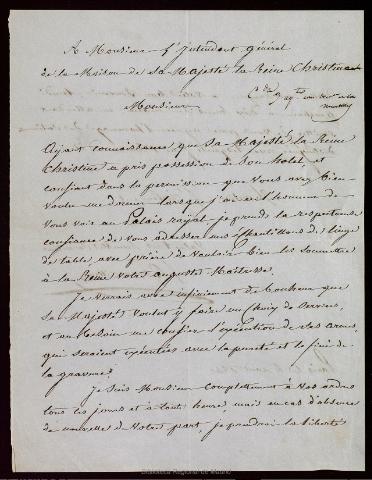 A Monsieur l'Intendant général
de la Maison de sa Majesté la Reine Christine
Monsieur
Ayant connaissance que sa Majesté la Reine
Christine a pris possession de son hotel, et
confiant dans la permission que vous avez bien
voulu me donner lorsque j'ai eu l'honneur de
vous voir au Palais royal, je prends la respectueuse
confiance de vous adresser mes échantillons de linge
de table, avec prière de vouloir bien les soumettre
à la Reine votre auguste Maitresse.
Je verrais avec infiniment de bonheur que
sa Majesté voulut y faire un choix de services,
et au besoin me confier l'exécution de ses armes,
qui seraient exécutées avec la pureté et le fini de
la gravure.
Je suis Monsieur complettement à vos ordres
tous les jours et à toute heure, mais en cas d'absence
de nouvelle de votre part, je prendrai la liberté
Biblioteca Regional de Madrid